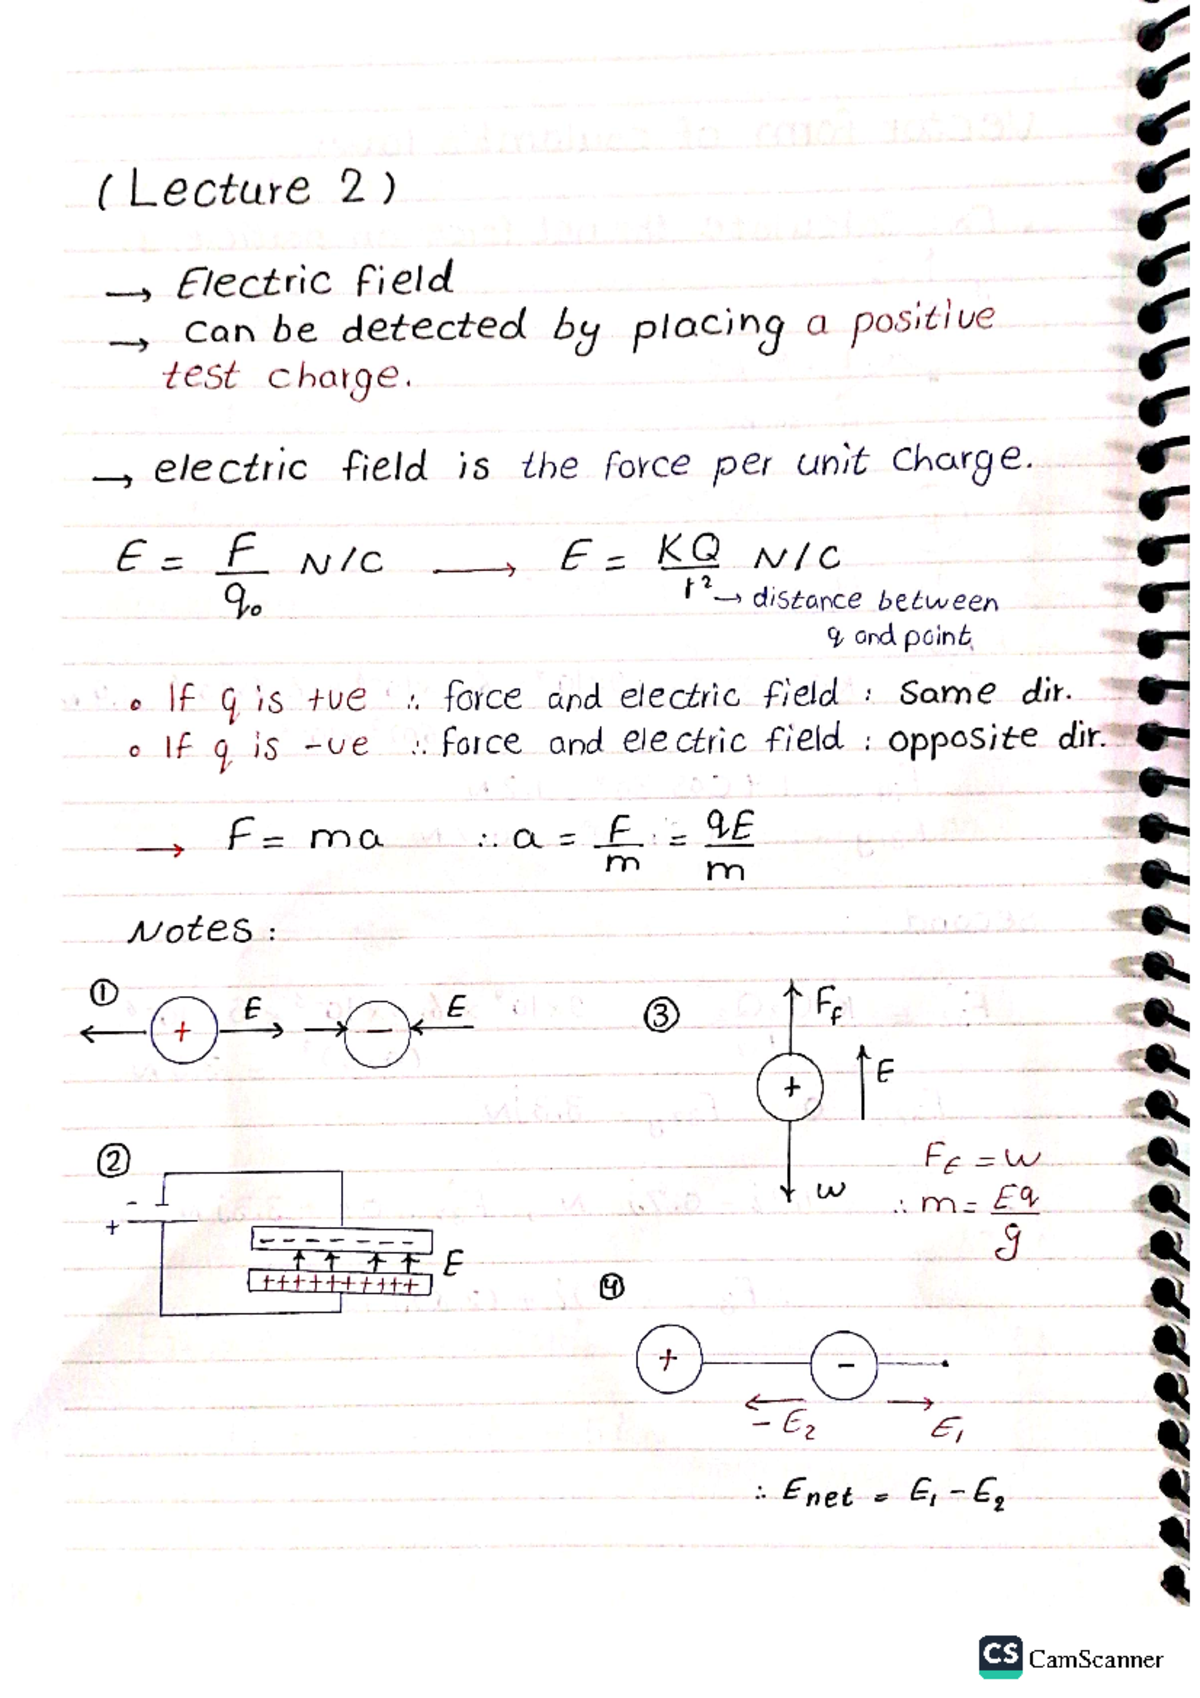 ( Lecture 2 )
→ Electric field
→ can be detected by placing a positive
test charge.
→ electric field is the force per unit charge.
E = F/q₀ N/C → E = KQ/r² N/C
→ distance between
q and point
• If q is +ve ∴ force and electric field : Same dir.
• If q is -ve ∴ force and electric field : opposite dir.
→ F = ma ∴ a = F/m = qE/m
Notes :
①
+ E - E
③
F_f
+ E
w
F_E = w
∴ m = Eq/g
②
- +
- - - - - - -
E
++++++++++
④
+ -
- E₂ E₁
∴ E net = E₁ - E₂
CS CamScanner